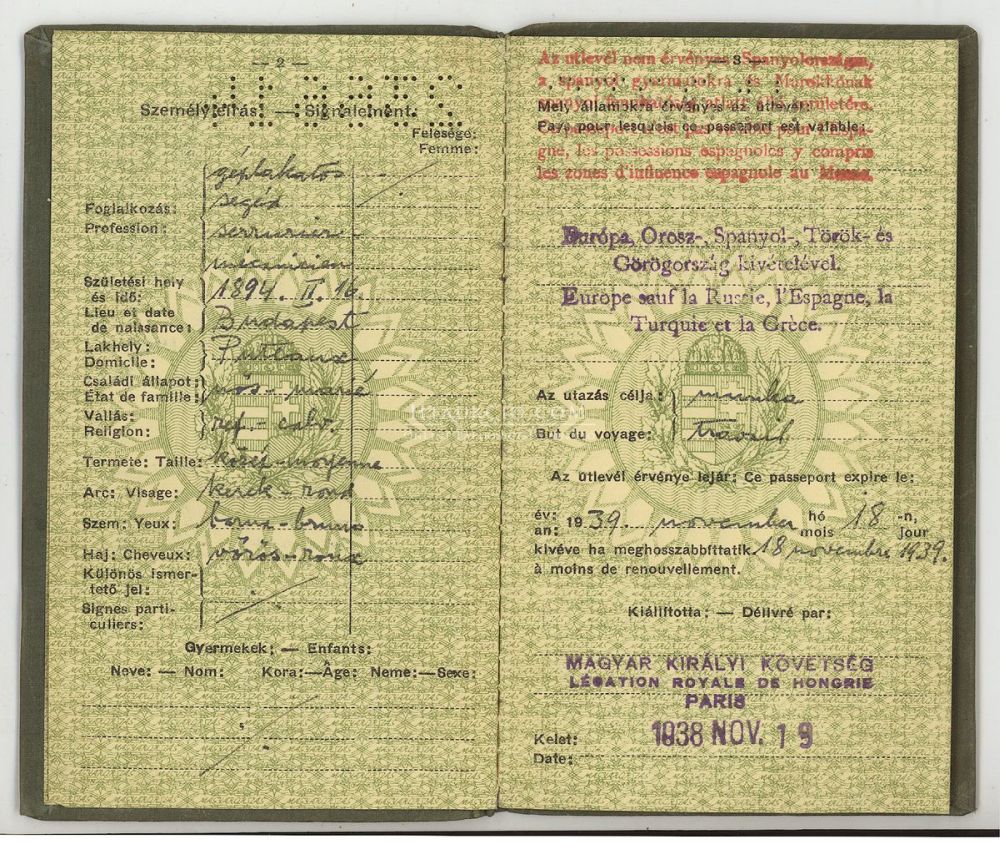 — 2 —
Személyleirás: — Signalement:
Felesége:
Femme:
géplakatos
segéd
Foglalkozás:
Profession: serrurier
mecanicien
Születési hely
és idő: 1894. II. 16.
Lieu et date
de naissance: Budapest
Lakhely: Puteaux
Domicile:
Családi állapot: nős - marié
État de famille:
Vallás: ref - calv.
Religion:
Termete: Taille: közép-moyenne
Arc: Visage: kerek - rond
Szem: Yeux: barna - bruns
Haj: Cheveux: vörös - roux
Különös ismer-
tető jel:
Signes parti-
culiers:
Gyermekek: — Enfants:
Neve: — Nom: Kora: — Âge: Neme: — Sexe:
— 3 —
Az utlevél nem érvényes Spanyolországra,
a spanyol gyarmatokra és Marokkónak
Mely államokra érvényes az útlevél:
Pays pour lesquels ce passeport est valable:
gne, les possessions espagnoles y compris
les zones d'influence espagnole au Maroc.
Európa, Orosz-, Spanyol-, Török- és
Görögország kivételével.
Europe sauf la Russie, l'Espagne, la
Turquie et la Grèce.
Az utazás célja: munka
But du voyage: travail
Az útlevél érvénye lejár: Ce passeport expire le:
év: 1939. november hó 18 -n,
an: mois jour
kivéve ha meghosszabbíttatik 18 novembre 1939.
à moins de renouvellement.
Kiállította: — Délivré par:
MAGYAR KIRÁLYI KÖVETSÉG
LÉGATION ROYALE DE HONGRIE
PARIS
Kelet: 1938 NOV. 19
Date: